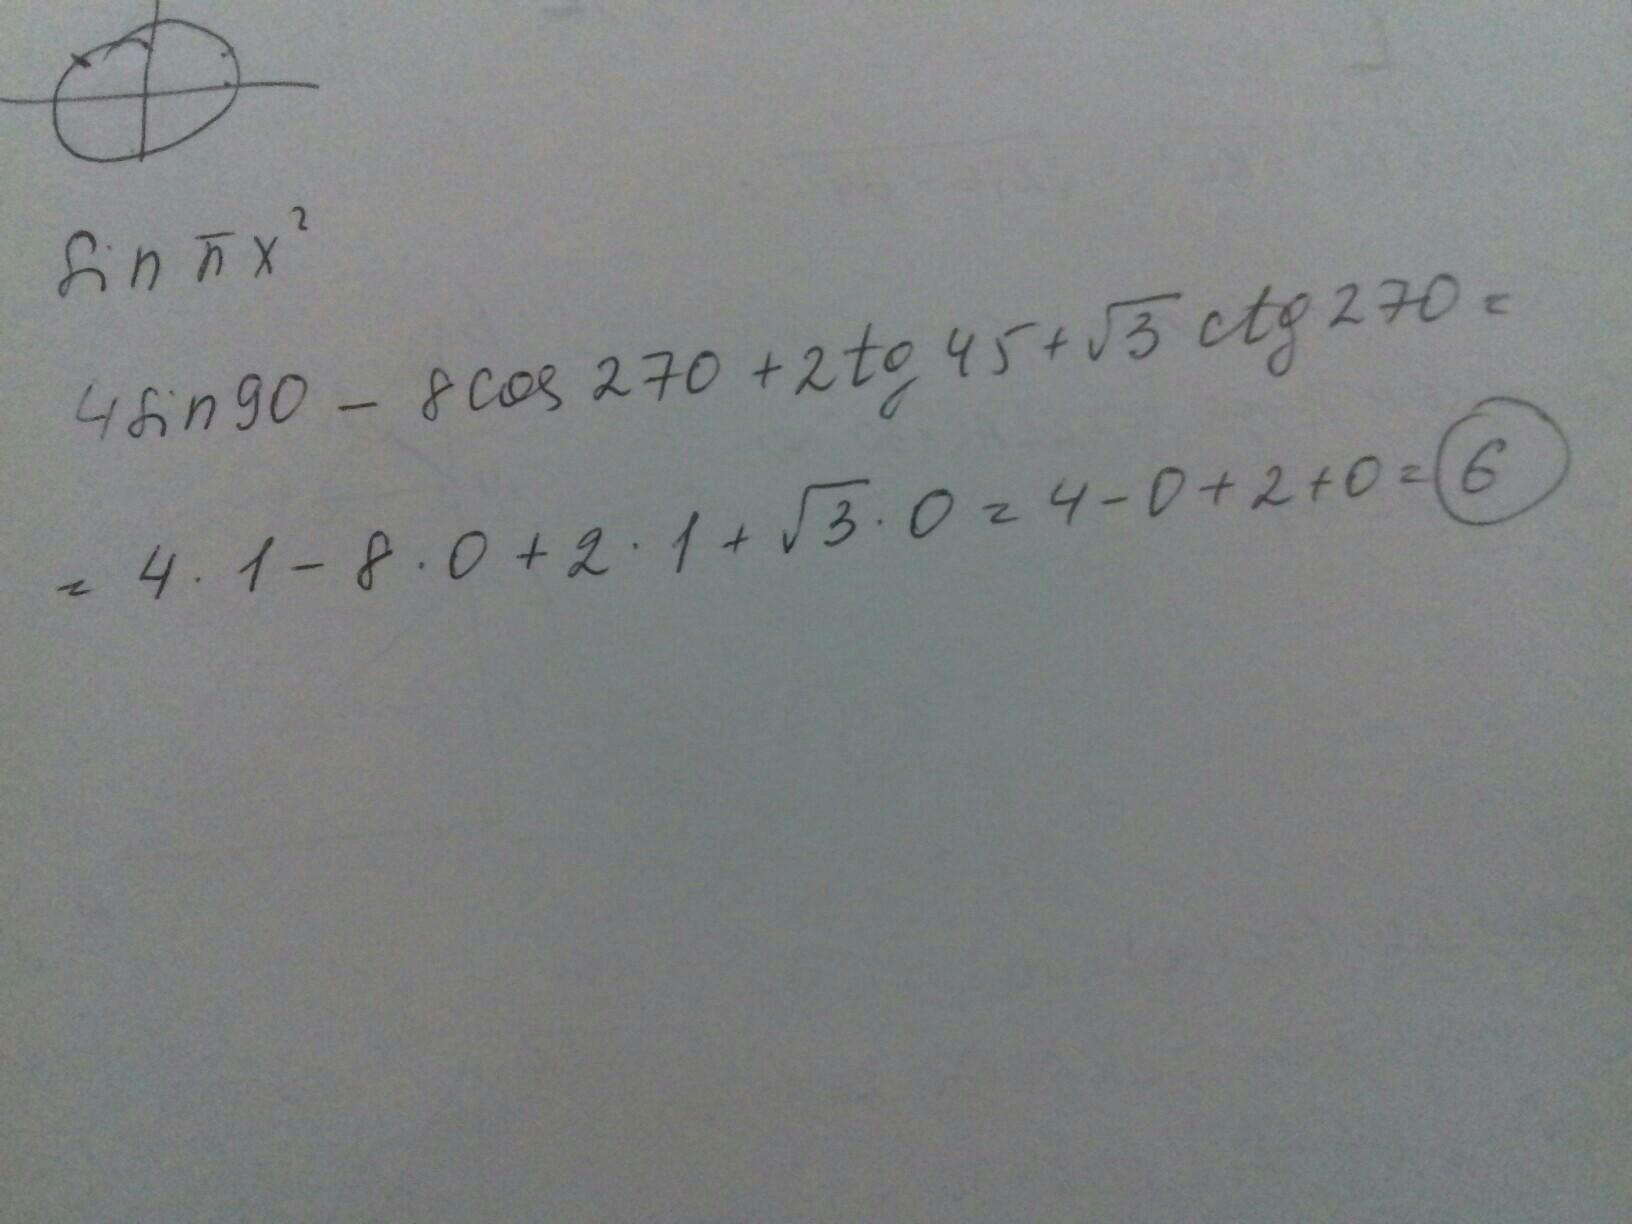 sin πx²
4sin90 - 8cos 270 + 2tg 45 + √3 ctg 270 =
= 4 · 1 - 8 · 0 + 2 · 1 + √3 · 0 = 4 - 0 + 2 + 0 = 6